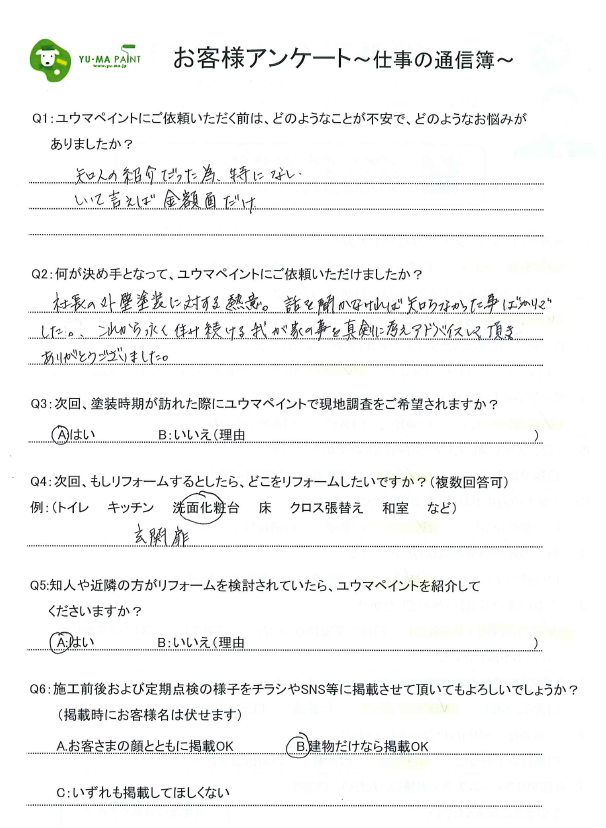 YU-MA PAINT
www.yu-ma.jp
お客様アンケート～仕事の通信簿～
Q1：ユウマペイントにご依頼いただく前は、どのようなことが不安で、どのようなお悩みが
ありましたか？
知人の紹介だった為、特になし.
いて言えば 金額面だけ
Q2：何が決め手となって、ユウマペイントにご依頼いただけましたか？
社長の外壁塗装に対する熱意。 話を聞かなければ知らなかった事ばかりで
した。、これから永く住み続ける我が家の事を真剣に考えアドバイスして頂き
ありがとうございました。
Q3：次回、塗装時期が訪れた際にユウマペイントで現地調査をご希望されますか？
A：はい B：いいえ（理由 ）
Q4：次回、もしリフォームするとしたら、どこをリフォームしたいですか？（複数回答可）
例：（トイレ キッチン 洗面化粧台 床 クロス張替え 和室 など）
玄関扉
Q5：知人や近隣の方がリフォームを検討されていたら、ユウマペイントを紹介して
くださいますか？
A：はい B：いいえ（理由 ）
Q6：施工前後および定期点検の様子をチラシやSNS等に掲載させて頂いてもよろしいでしょうか？
（掲載時にお客様名は伏せます）
A.お客さまの顔とともに掲載OK B.建物だけなら掲載OK
C：いずれも掲載してほしくない